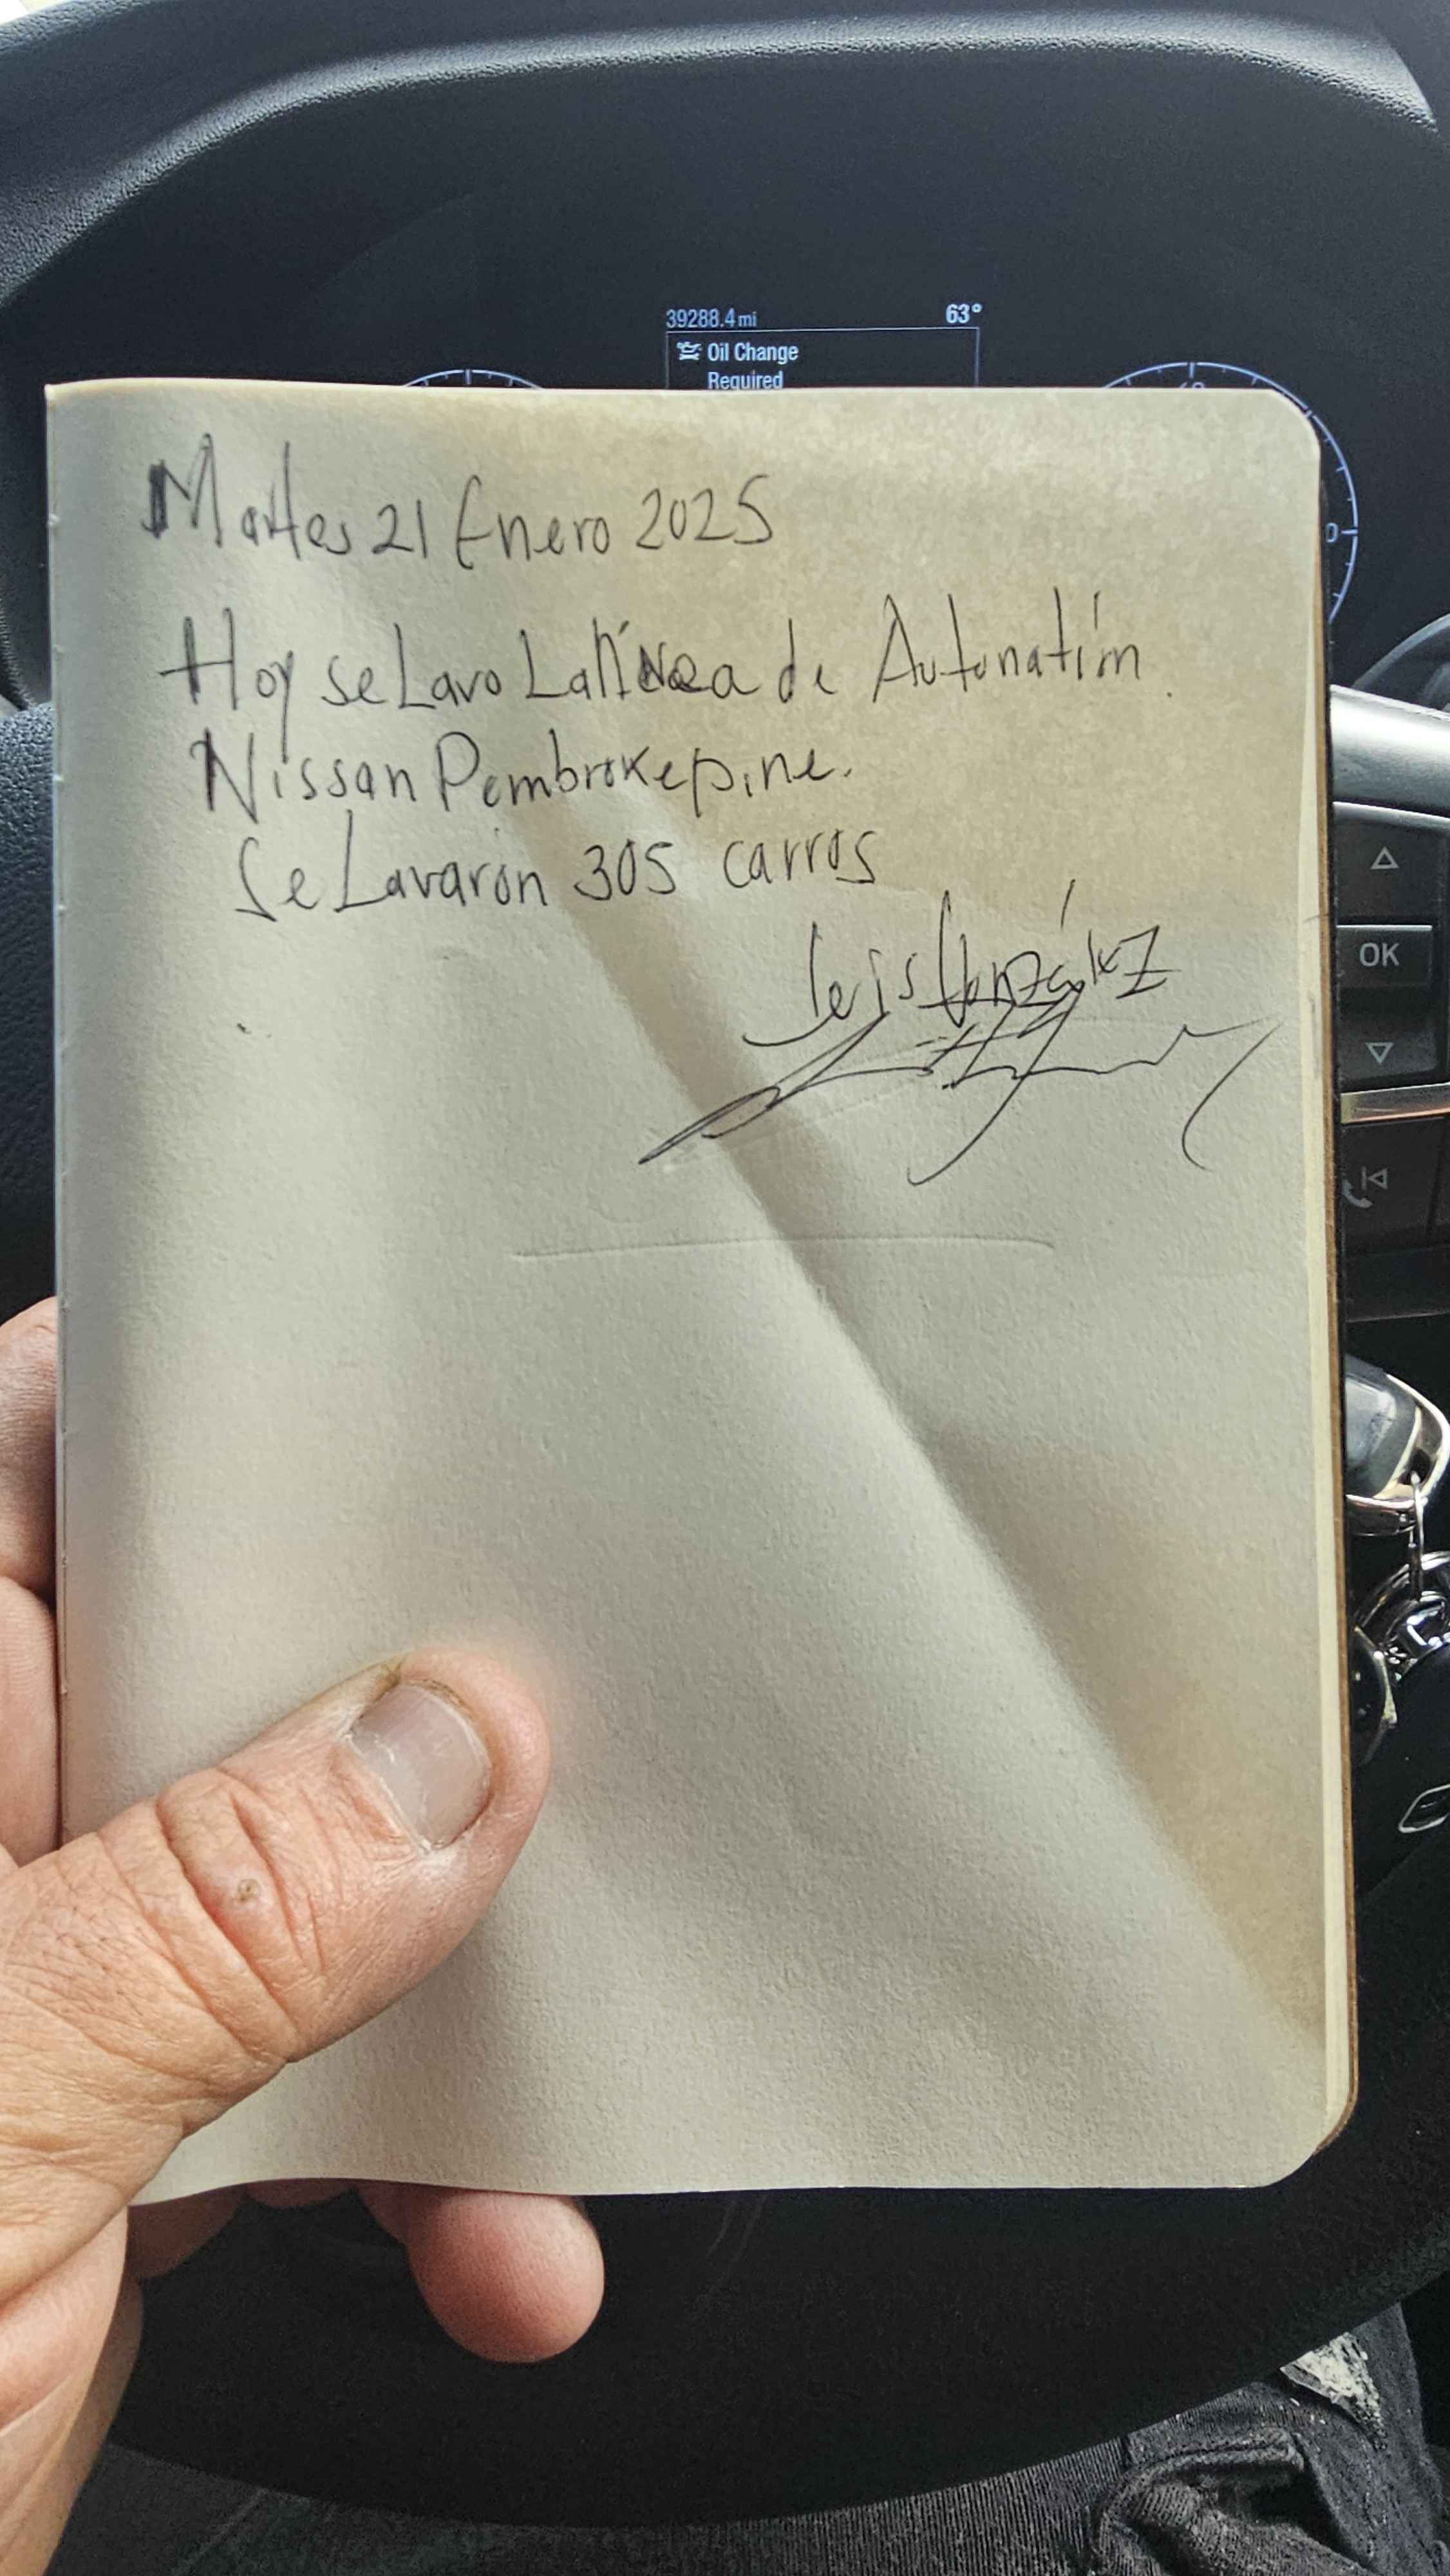 39288.4 mi 63°
Oil Change
Required
Martes 21 Enero 2025
Hoy se Lavo La línea de Autonatim.
Nissan Pembrokepine.
Se Lavaron 305 carros
Luis González
OK